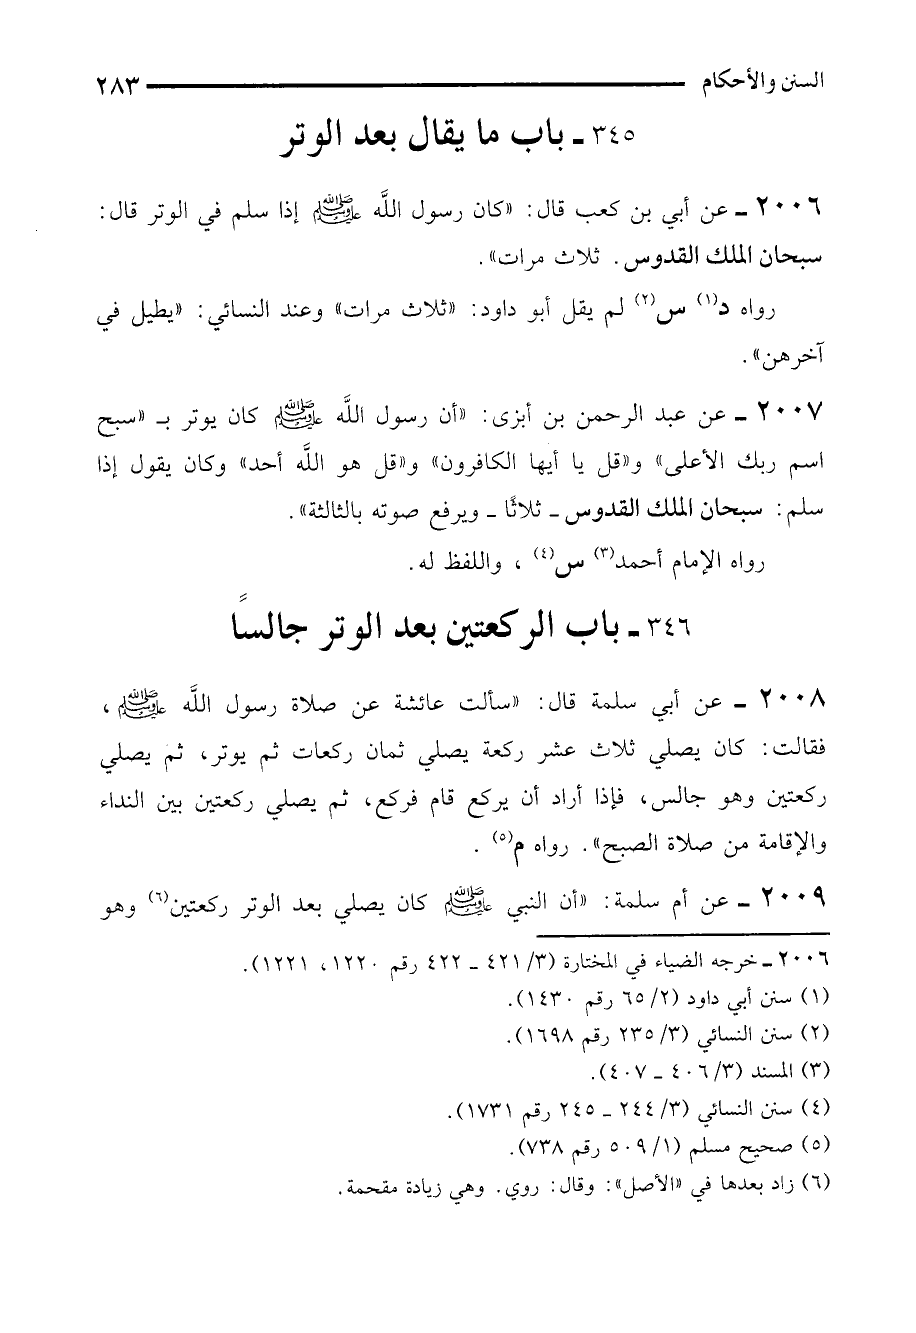 السنن والأحكام ٢٨٣
٣٤٥ ـ باب ما يقال بعد الوتر
٢٠٠٦ ـ عن أبي بن كعب قال: «كان رسول اللَّه ﷺ إذا سلم في الوتر قال:
سبحان الملك القدوس. ثلاث مرات».
رواه د(١) س(٢) لم يقل أبو داود: «ثلاث مرات» وعند النسائي: «يطيل في
آخرهن».
٢٠٠٧ ـ عن عبد الرحمن بن أبزى: «أن رسول اللَّه ﷺ كان يوتر بـ «سبح
اسم ربك الأعلى» و«قل يا أيها الكافرون» و«قل هو اللَّه أحد» وكان يقول إذا
سلم: سبحان الملك القدوس ـ ثلاثًا ـ ويرفع صوته بالثالثة».
رواه الإمام أحمد(٣) س(٤) ، واللفظ له.
٣٤٦ ـ باب الركعتين بعد الوتر جالسًا
٢٠٠٨ ـ عن أبي سلمة قال: «سألت عائشة عن صلاة رسول اللَّه ﷺ،
فقالت: كان يصلي ثلاث عشر ركعة يصلي ثمان ركعات ثم يوتر، ثم يصلي
ركعتين وهو جالس، فإذا أراد أن يركع قام فركع، ثم يصلي ركعتين بين النداء
والإقامة من صلاة الصبح». رواه م(٥) .
٢٠٠٩ ـ عن أم سلمة: «أن النبي ﷺ كان يصلي بعد الوتر ركعتين(٦) وهو
٢٠٠٦ ـ خرجه الضياء في المختارة (٣/ ٤٢١ ـ ٤٢٢ رقم ١٢٢٠، ١٢٢١).
(١) سنن أبي داود (٢/ ٦٥ رقم ١٤٣٠).
(٢) سنن النسائي (٣/ ٢٣٥ رقم ١٦٩٨).
(٣) المسند (٣/ ٤٠٦ ـ ٤٠٧).
(٤) سنن النسائي (٣/ ٢٤٤ ـ ٢٤٥ رقم ١٧٣١).
(٥) صحيح مسلم (١/ ٥٠٩ رقم ٧٣٨).
(٦) زاد بعدها في «الأصل»: وقال: روي. وهي زيادة مقحمة.